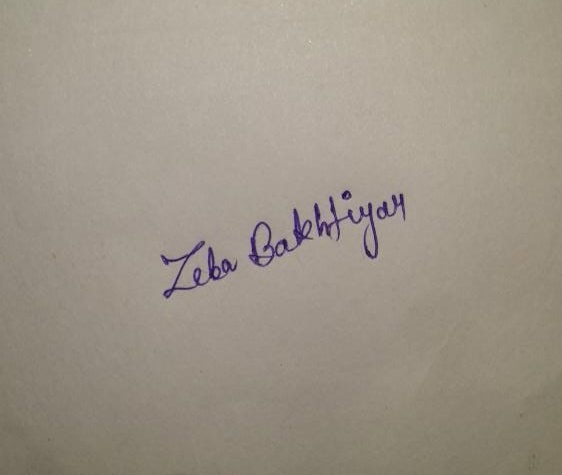 Zeba Bakhtiyar